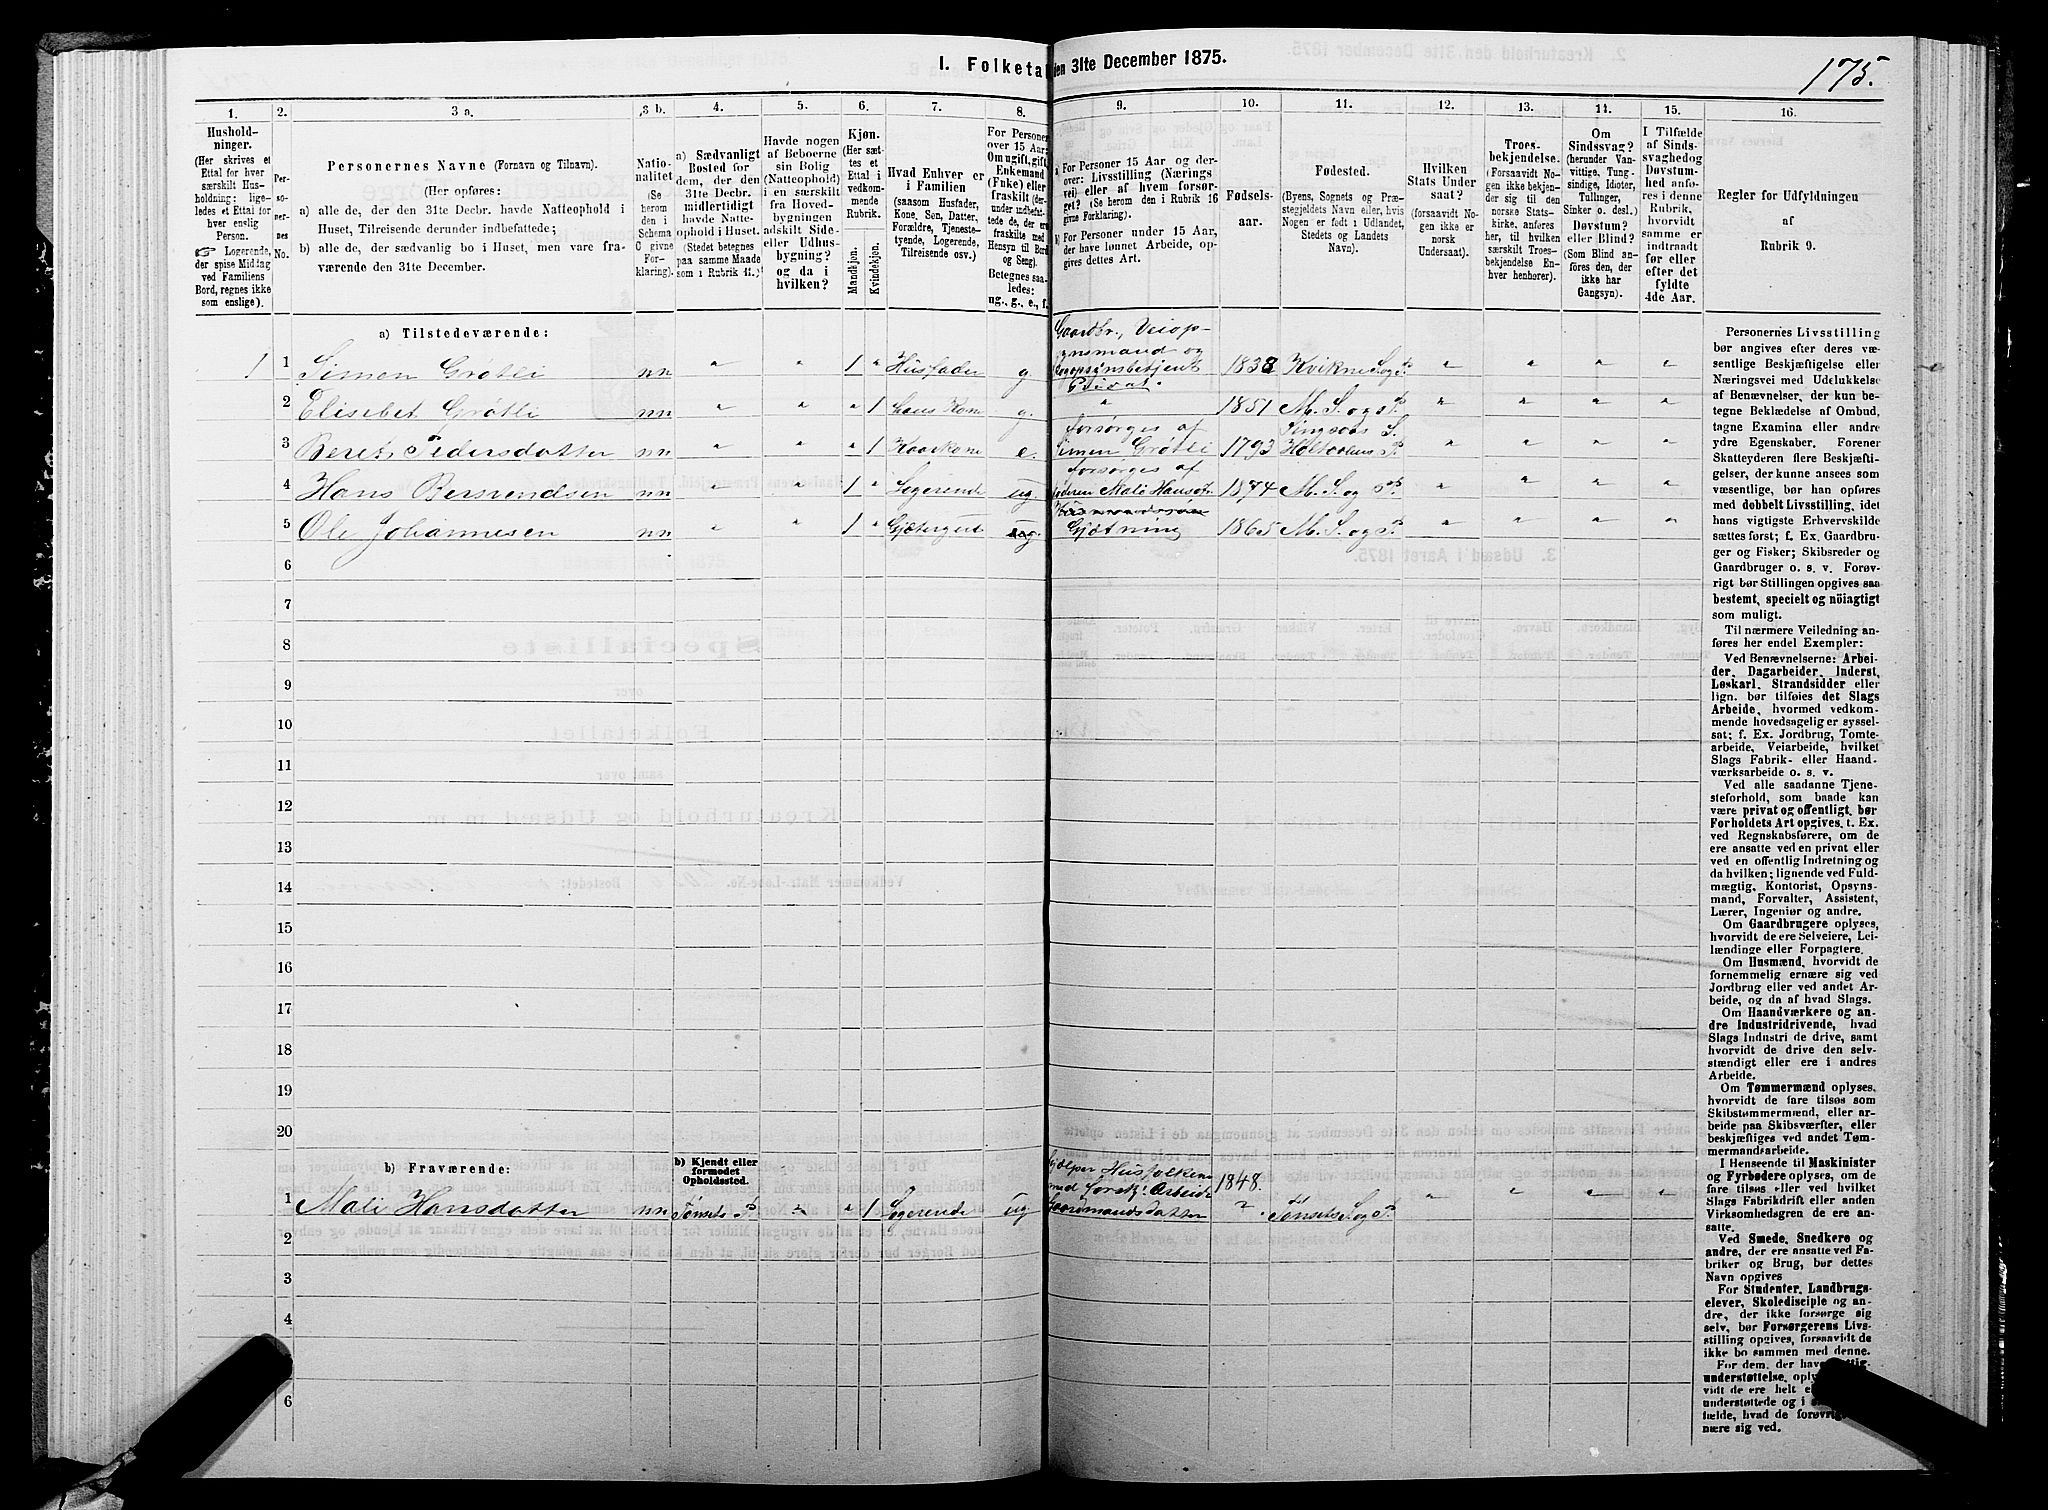 I. Folketal den 31te December 1875.
175.
1.
Hushold-
ninger.
(Her skrives et
Ettal for hver
særskilt Hus-
holdning; lige-
ledes et Ettal for
hver enslig
Person.
Logerende,
der spise Middag
ved Familiens
Bord, regnes ikke
som enslige).
2.
Per-
so-
ner-
nes
No.
3 a.
Personernes Navne (Fornavn og Tilnavn).
(Her opføres:
a) alle de, der den 31te Decbr. havde Natteophold i
Huset, Tilreisende derunder indbefattede;
b) alle de, der sædvanlig bo i Huset, men vare fra-
værende den 31te December.
3 b.
Natio-
nalitet
(Se
herom
den i
Schema
C givne
For-
klaring).
4.
a) Sædvanligt
Bosted for
dem, der den
31te Decbr.
midlertidigt
havde Natte-
ophold i Huset.
(Stedet betegnes
paa samme Maade
som i Rubrik 11.)
5.
Havde nogen
af Beboerne
sin Bolig
(Natteophold)
i en særskilt
fra Hoved-
bygningen
adskilt Side-
eller Udhus-
bygning?
og da i
hvilken?
6.
Kjøn.
(Her sæt-
tes et
Ettal i
vedkom-
mende
Rubrik.
Mandkjøn.
Kvindekjøn.
7.
Hvad Enhver er
i Familien
(saasom Husfader,
Kone, Søn, Datter,
Forældre, Tjeneste-
tyende, Logerende,
Tilreisende osv.)
8.
For Personer
over 15 Aar:
Om ugift, gift,
Enkemand
(Enke) eller
fraskilt (der-
under indbefat-
tede de, der ere
fraskilte med
Hensyn til Bord
og Seng).
Betegnes saa-
ledes:
ug., g., e., f.
9.
a) For Personer 15 Aar og der-
over: Livsstilling (Nærings
vei) eller af hvem forsør-
get? (Se herom den i Rubrik 16
givne Forklaring).
b) For Personer under 15 Aar,
der have lønnet Arbeide, op-
gives dettes Art.
10.
Fødsels-
aar.
11.
Fødested.
(Byens, Sognets og Præ-
stegjeldets Navn eller, hvis
Nogen er født i Udlandet,
Stedets og Landets
Navn).
12.
Hvilken
Stats Under
saat?
(forsaavidt No-
gen ikke er
norsk
Undersaat).
13.
Troes-
bekjendelse.
(Forsaavidt No-
gen ikke bekjen-
der sig til den
norske Stats-
kirke, anføres
her, til hvilken
særskilt Troes-
bekjendelse En-
hver henhører).
14.
Om
Sindssvag?
(herunder Van-
vittige, Tung-
sindige, Idioter,
Tullinger,
Sinker o. desl.)
Døvstum?
eller Blind?
(Som Blind an-
føres den, der
ikke har
Gangsyn).
15.
I Tilfælde
af Sinds-
svaghed og
Døvstum-
hed anfø-
res i denne
Rubrik,
hvorvidt
samme er
indtraadt
før eller
efter det
fyldte
4de Aar.
16.
Regler for Udfyldningen
af
Rubrik 9.
a) Tilstedeværende:
1 1 Simen Grøtli nn " " 1 " Husfader g. Gaardbr., Veiop-
synsmand og
Skogopsynsbetjent
Privat. 1838 Kvikne S. og P. " " " "
2 Elisebet Grøtli nn " " " 1 hans Kone g. " 1851 M. S. og P. " " " "
3 Beret Pedersdatter nn " " " 1 Kaarkone e. forsørges af
Simen Grøtli 1793 Singsaas S.
Holtaalens P. " " " "
4 Hans Bersvendsen nn " " 1 " Logerende ug forsørges af
Moderen Mali Hansdtr. 1874 M. S. og P. " " " "
5 Ole Johannesen nn " " 1 " Gjætergut ug
Gjætning 1865 M. S. og P. " " " "
6
7
8
9
10
11
12
13
14
15
16
17
18
19
20
b) Fraværende:
b) Kjendt eller
formodet
Opholdssted.
1 Mali Hansdatter nn Tønsets P. " " 1 Logerende ug hjælper Husfolkene
med forsk. Arbeide
Gaardmandsdatter 1848.
? Tønsets S. og P. " " " "
2
3
4
5
6
Personernes Livsstilling
bør angives efter deres væ-
sentlige Beskjæftigelse eller
Næringsvei med Udelukkelse
af Benævnelser, der kun be-
tegne Beklædelse af Ombud,
tagne Examina eller andre
ydre Egenskaber. Forener
Skatteyderen flere Beskjæfti-
gelser, der kunne ansees som
væsentlige, bør han opføres
med dobbelt Livsstilling, idet
hans vigtigste Erhvervskilde
sættes først; f. Ex. Gaardbru-
ger og Fisker; Skibsreder og
Gaardbruger o. s. v. Forøv-
rigt bør Stillingen opgives saa
bestemt, specielt og nöiagtigt
som muligt.
Til nærmere Veiledning an-
føres her endel Exempler:
Ved Benævnelserne: Arbei-
der, Dagarbeider, Inderst,
Løskarl, Strandsidder eller
lign. bør tilføies det Slags
Arbeide, hvormed vedkom-
mende hovedsagelig er syssel-
sat; f. Ex. Jordbrug, Tomte-
arbeide, Veiarbeide, hvilket
Slags Fabrik- eller Haand-
værksarbeide o. s. v.
Ved alle saadanne Tjene-
steforhold, som baade kan
være privat og offentligt, bør
Forholdets Art opgives, t. Ex.
ved Regnskabsførere, om de
ere ansatte ved en privat eller
ved en offentlig Indretning og
da hvilken; lignende ved Fuld-
mægtig, Kontorist, Opsyns-
mand, Forvalter, Assistent,
Lærer, Ingeniør og andre.
Om Gaardbrugere oplyses,
hvorvidt de ere Selveiere, Lei-
lændinge eller Forpagtere.
Om Husmænd, hvorvidt de
fornemmelig ernære sig ved
Jordbrug eller ved andet Ar-
beide, og da af hvad Slags.
Om Haandværkere og an-
dre Industridrivende, hvad
Slags Industri de drive, samt
hvorvidt de drive den selv-
stændigt eller ere i andres
Arbeide.
Om Tømmermænd oplyses,
hvorvidt de fare tilsøs som
Skibstømmermænd, eller ar-
beide paa Skibsværfter, eller
beskjæftiges ved andet Tøm-
mermandsarbeide.
I Henseende til Maskinister
og Fyrbødere oplyses, om de
fare tilsøs eller ved hvilket
Slags Fabrikdrift eller anden
Virksomhedsgren de ere an-
satte.
Ved Smede, Snedkere og
andre, der ere ansatte ved Fa-
briker og Brug, bør dettes
Navn opgives
For Studenter, Landbrugs-
elever, Skoledisciple og an-
dre, der ikke forsørge sig
selv, bør Forsørgerens Livs-
stilling opgives, forsaavidt de
ikke bo sammen med denne.
For dem, der have
understøttelse,
vidt de ere helt
understøttede og i
fælde, hvad de
nære sig ved.